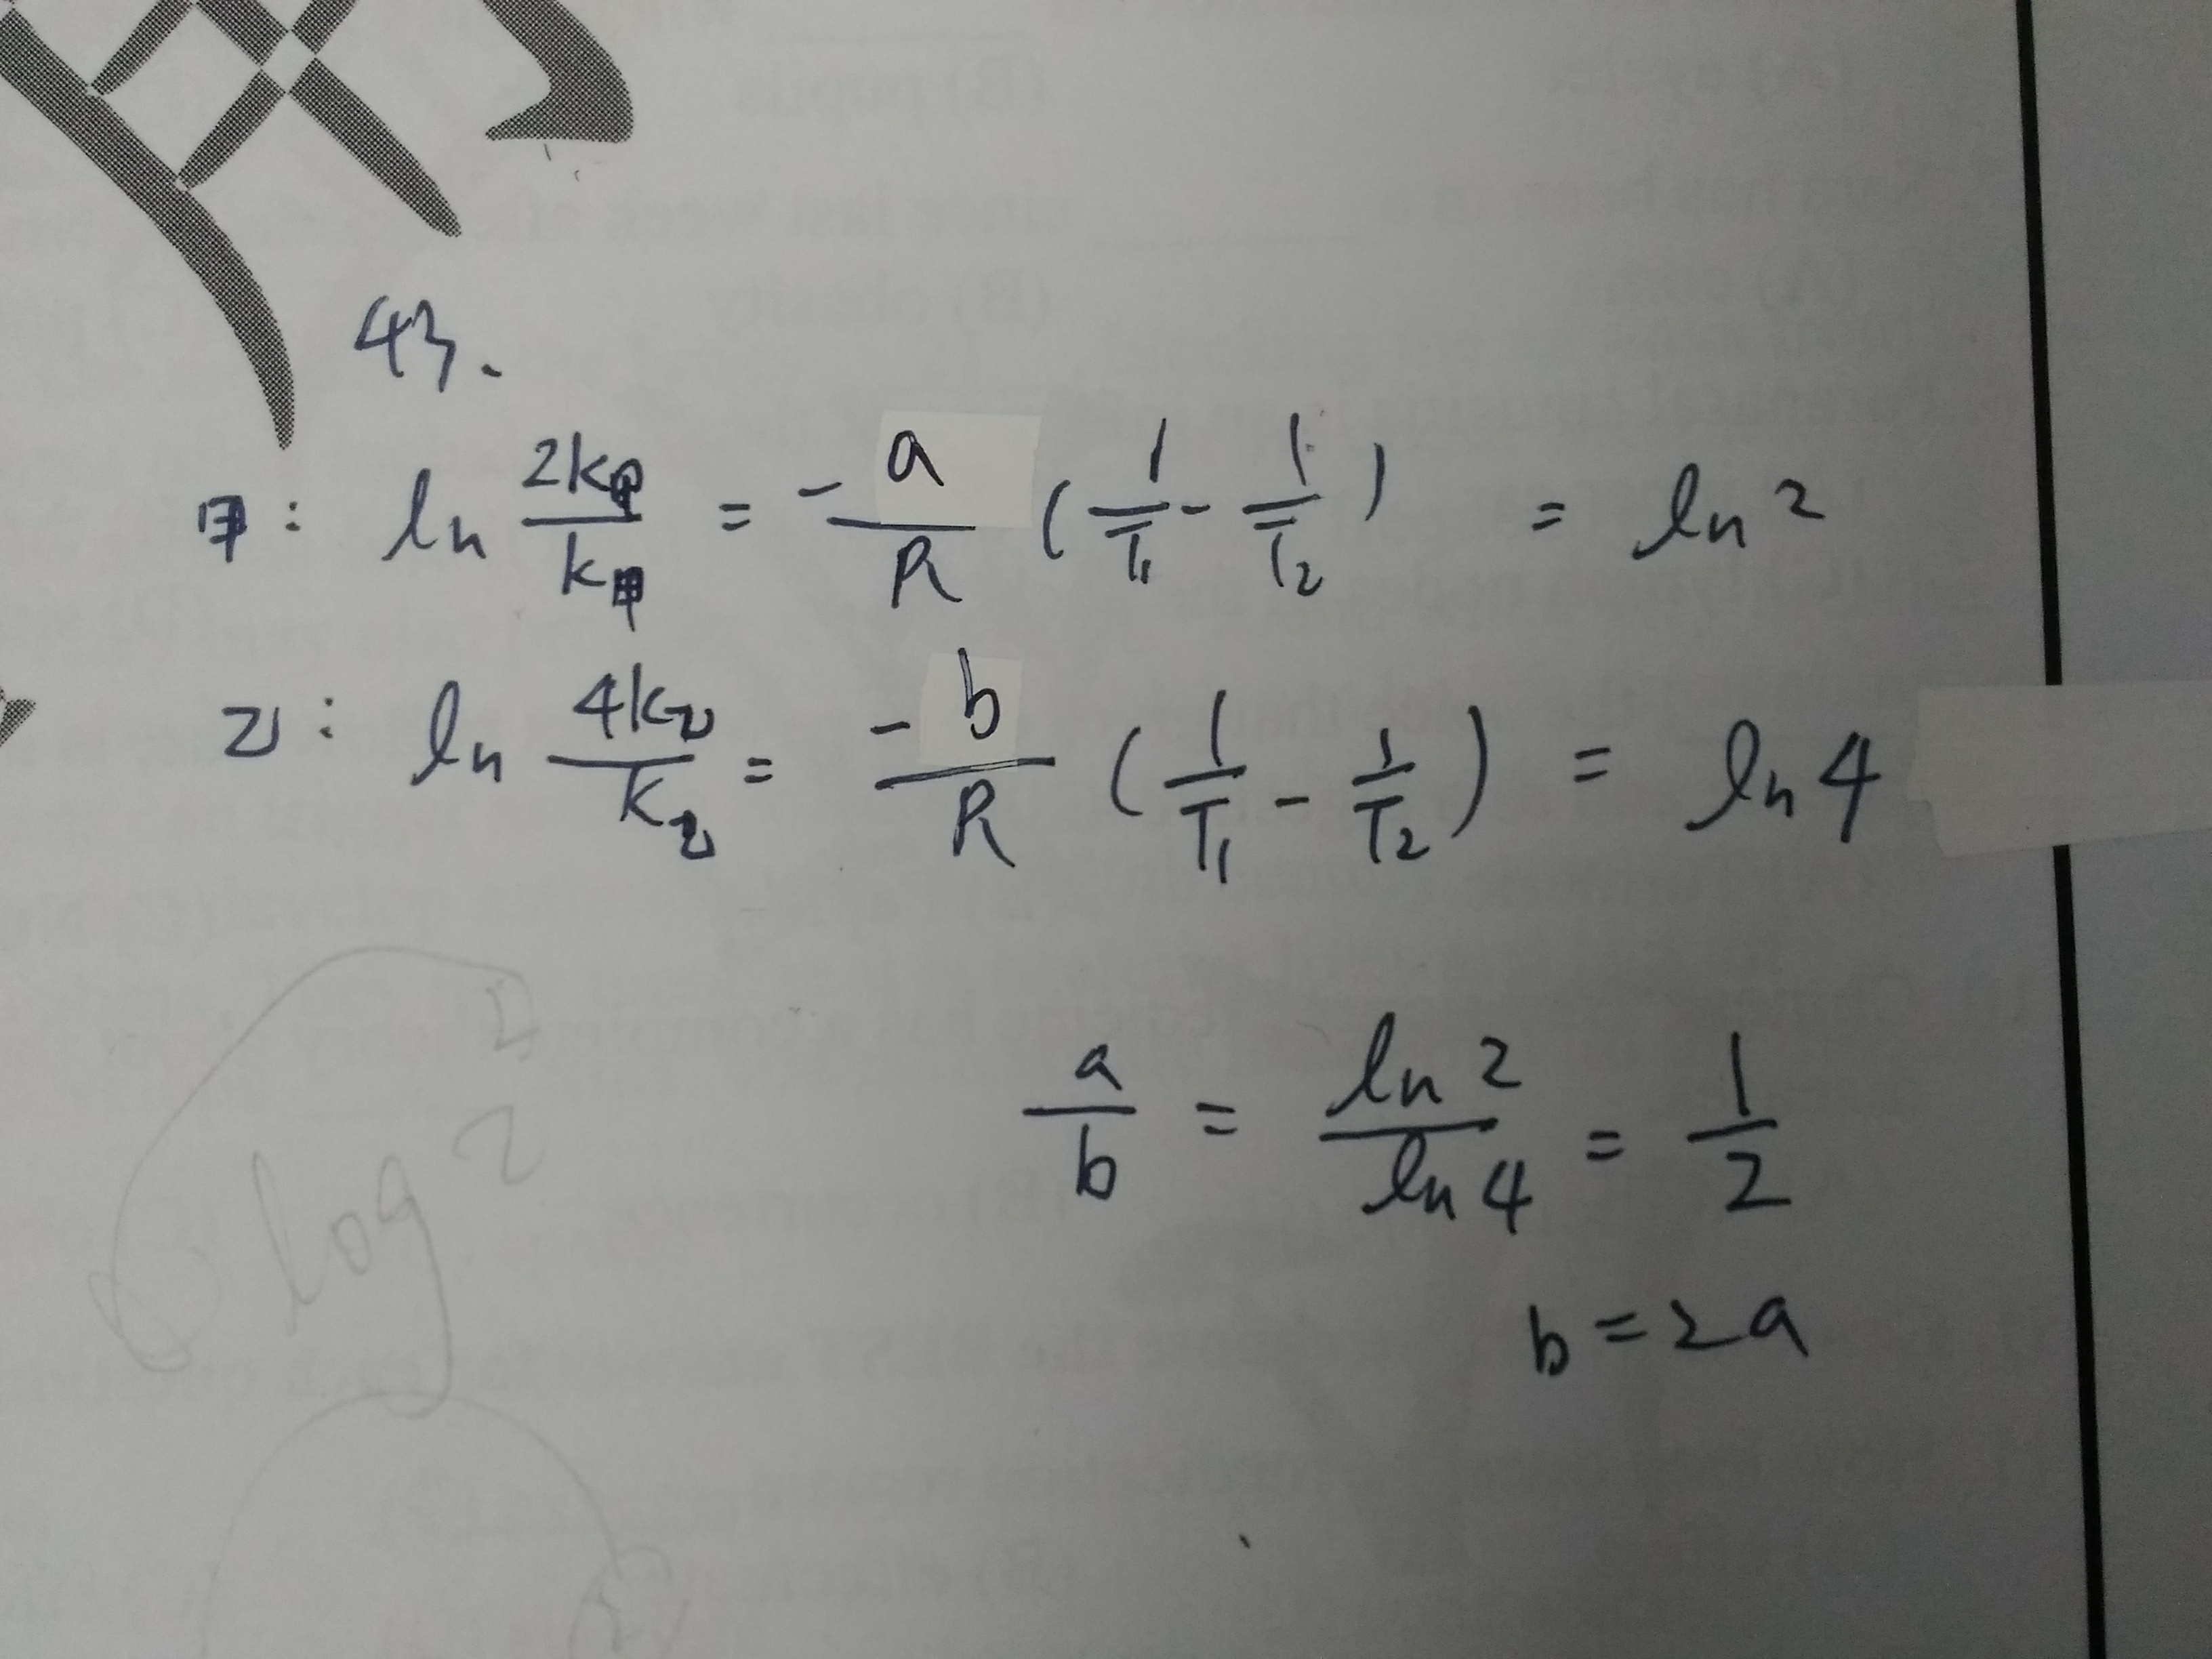 43.
甲: ln 2k甲/k甲 = -a/R (1/T₁ - 1/T₂) = ln 2
乙: ln 4k乙/k乙 = -b/R (1/T₁ - 1/T₂) = ln 4
a/b = ln 2/ln 4 = 1/2
b = 2a
log 2